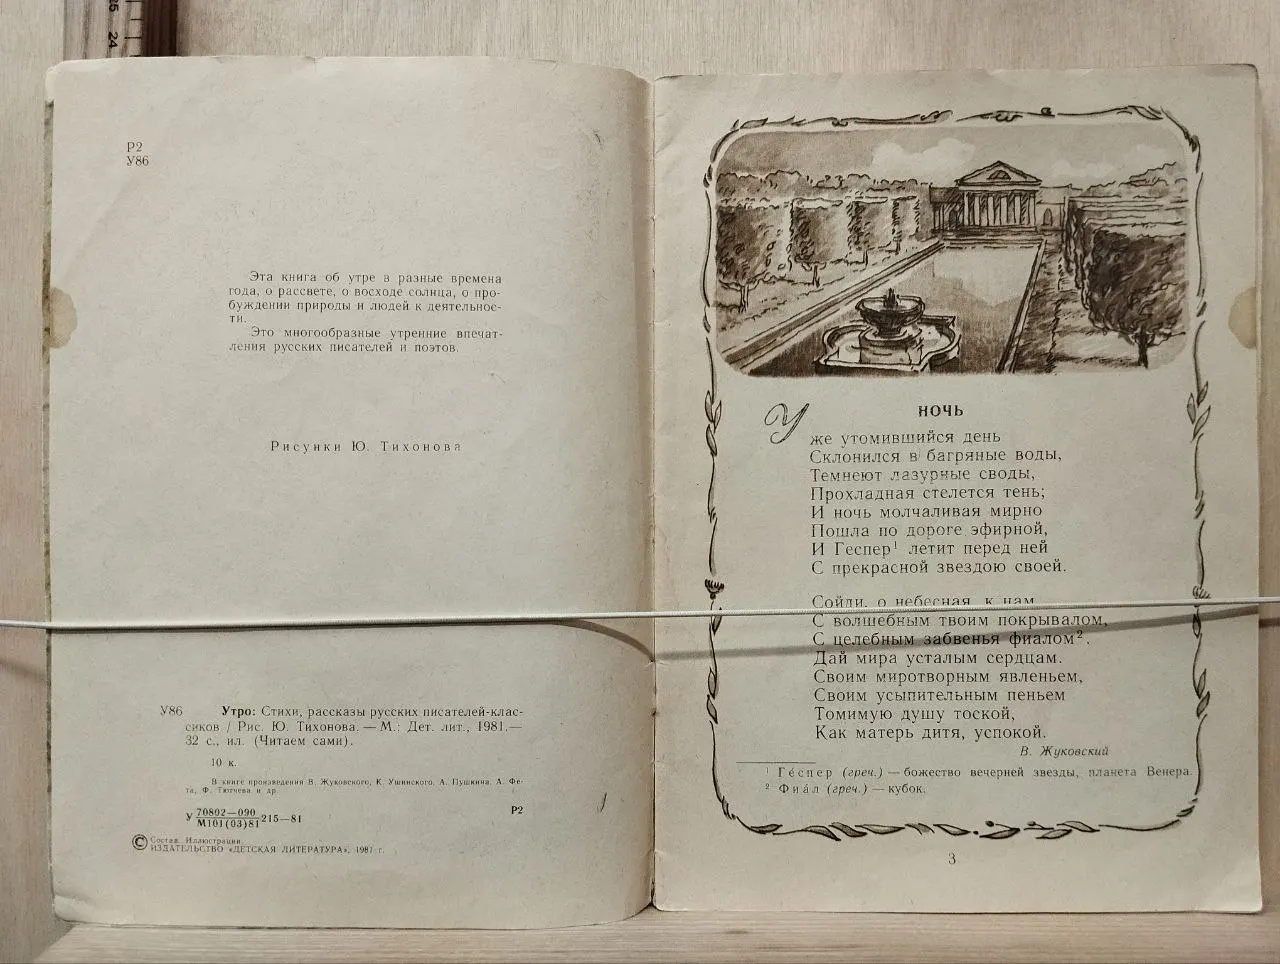 25
24
Р2
У86
Эта книга об утре в разные времена
года, о рассвете, о восходе солнца, о про-
буждении природы и людей к деятельнос-
ти.
Это многообразные утренние впечат-
ления русских писателей и поэтов.
Рисунки Ю. Тихонова
У86 Утро: Стихи, рассказы русских писателей-клас-
сиков / Рис. Ю. Тихонова. — М.: Дет. лит., 1981.—
32 с., ил. (Читаем сами).
10 к.
В книге произведения В. Жуковского, К. Ушинского, А. Пушкина, А. Фе-
та, Ф. Тютчева и др.
У 70802—090 215—81 Р2
М101(03)81
© Состав. Иллюстрации.
ИЗДАТЕЛЬСТВО «ДЕТСКАЯ ЛИТЕРАТУРА», 1981 г.
НОЧЬ
Уже утомившийся день
Склонился в багряные воды,
Темнеют лазурные своды,
Прохладная стелется тень;
И ночь молчаливая мирно
Пошла по дороге эфирной,
И Геспер¹ летит перед ней
С прекрасной звездою своей.
Сойди, о небесная, к нам
С волшебным твоим покрывалом,
С целебным забвенья фиалом².
Дай мира усталым сердцам.
Своим миротворным явленьем,
Своим усыпительным пеньем
Томимую душу тоской,
Как матерь дитя, успокой.
В. Жуковский
¹ Ге́спер (греч.) — божество вечерней звезды, планета Венера.
² Фиа́л (греч.) — кубок.
3